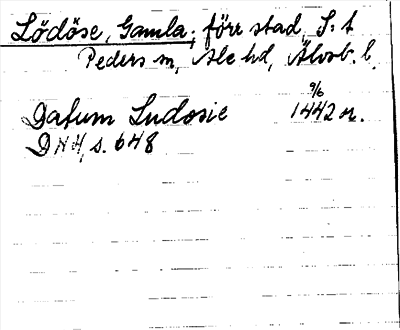 Lödöse, Gamla, förr stad, S:t
Peders sn, Ale hd, Älvsb. l.
9/6
Datum Ludosie 1442 or.
DN 4, s. 648